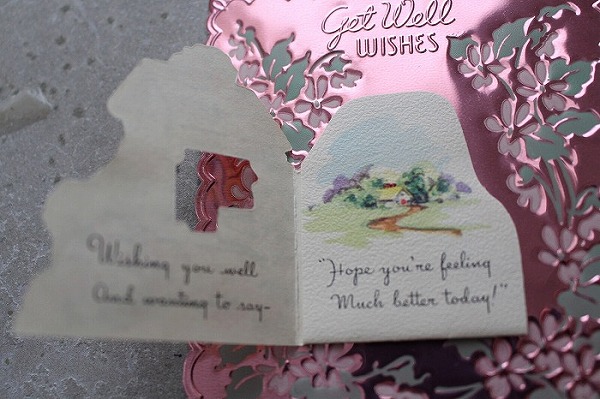 Get Well
WISHES
Wishing you well
And wanting to say-
"Hope you're feeling
Much better today!"